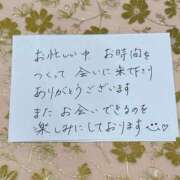 お忙しい中 お時間を
つくって 会いに来て下さり
ありがとうございます
またお会いできるのを
楽しみにしております